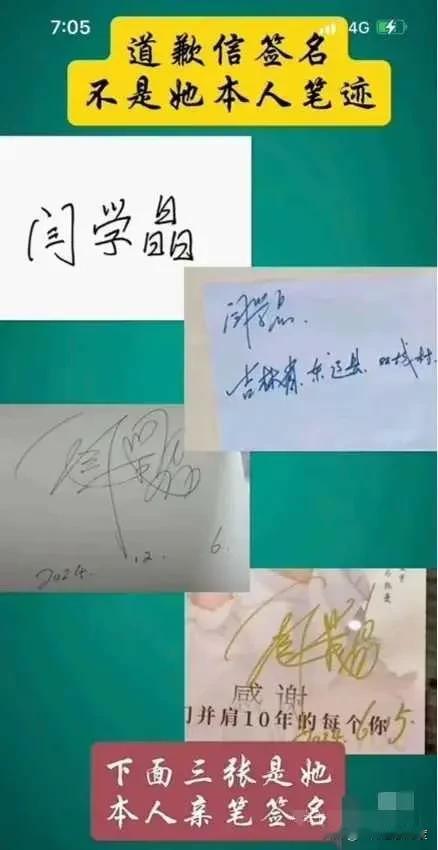 7:05
4G
道歉信签名
不是她本人笔迹
闫学晶
闫学晶
吉林省.东辽县.双栈村.
闫学晶
2024. 12. 6.
闫学晶
感谢
门并肩10年的每个你
2024.6.5
下面三张是她
本人亲笔签名